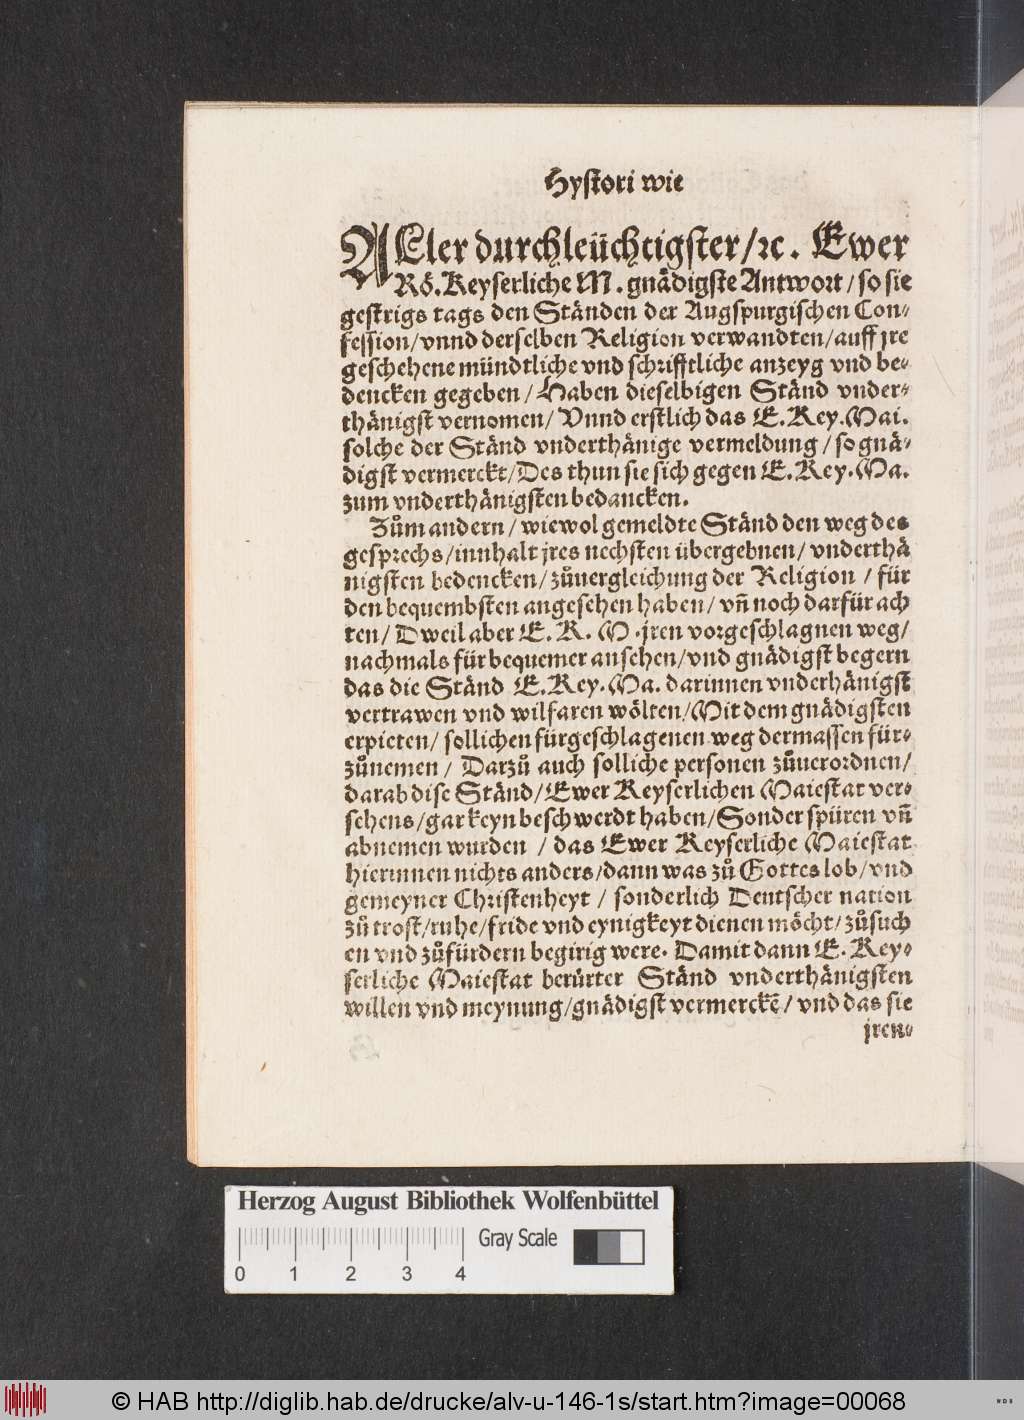 Hystori wie
ALler durchleüchtigster/ꝛc. Ewer
Rö. Keyserliche M. gnädigste Antwort/so sie
gestrigs tags den Ständen der Augspurgischen Con-
fession/vnnd derselben Religion verwandten/auff jre
geschehene mündtliche vnd schrifftliche anzeyg vnd be-
dencken gegeben/Haben dieselbigen Ständ vnder-
thänigst vernomen/Vnnd erstlich das E. Key. Mai.
solche der Ständ vnderthänige vermeldung/so gnä-
digst vermerckt/Des thun sie sich gegen E. Key. Ma.
zum vnderthänigsten bedancken.
Zům andern/wiewol gemeldte Ständ den weg des
gesprechs/innhalt jres nechsten übergebnen/vnderthä
nigsten bedencken/zůuergleichung der Religion/für
den bequembsten angesehen haben/vñ noch darfür ach
ten/Dweil aber E. K. M. jren vorgeschlagnen weg/
nachmals für bequemer ansehen/vnd gnädigst begern
das die Ständ E. Key. Ma. darinnen vnderhänigst
vertrawen vnd wilfaren wölten/Mit dem gnädigsten
erpieten/sollichen fürgeschlagenen weg dermassen für-
zůnemen/Darzů auch solliche personen zůuerordnen/
darab dise Ständ/Ewer Keyserlichen Maiestat ver-
sehens/gar keyn beschwerdt haben/Sonder spüren vñ
abnemen wurden/das Ewer Keyserliche Maiestat
hierinnen nichts anders/dann was zů Gottes lob/vnd
gemeyner Christenheyt/sonderlich Deutscher nation
zů trost/ruhe/fride vnd eynigkeyt dienen möcht/zůsuch
en vnd zůfürdern begirig were. Damit dann E. Key-
serliche Maiestat berürter Ständ vnderthänigsten
willen vnd meynung/gnädigst vermerckē/vnd das sie
jren-
Herzog August Bibliothek Wolfenbüttel
Gray Scale
0 1 2 3 4
© HAB http://diglib.hab.de/drucke/alv-u-146-1s/start.htm?image=00068